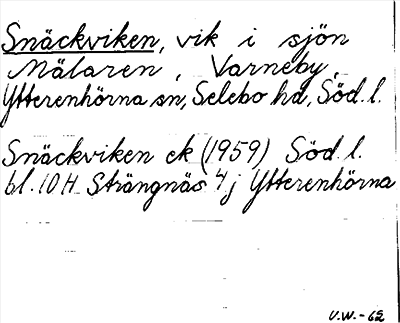 Snäckviken, vik i sjön
Mälaren, Varneby,
Ytterenhörna sn, Selebo hd, Söd. l.
Snäckviken ek (1959) Söd. l.
bl. 10 H Strängnäs 4 j Ytterenhörna
U.W.-62